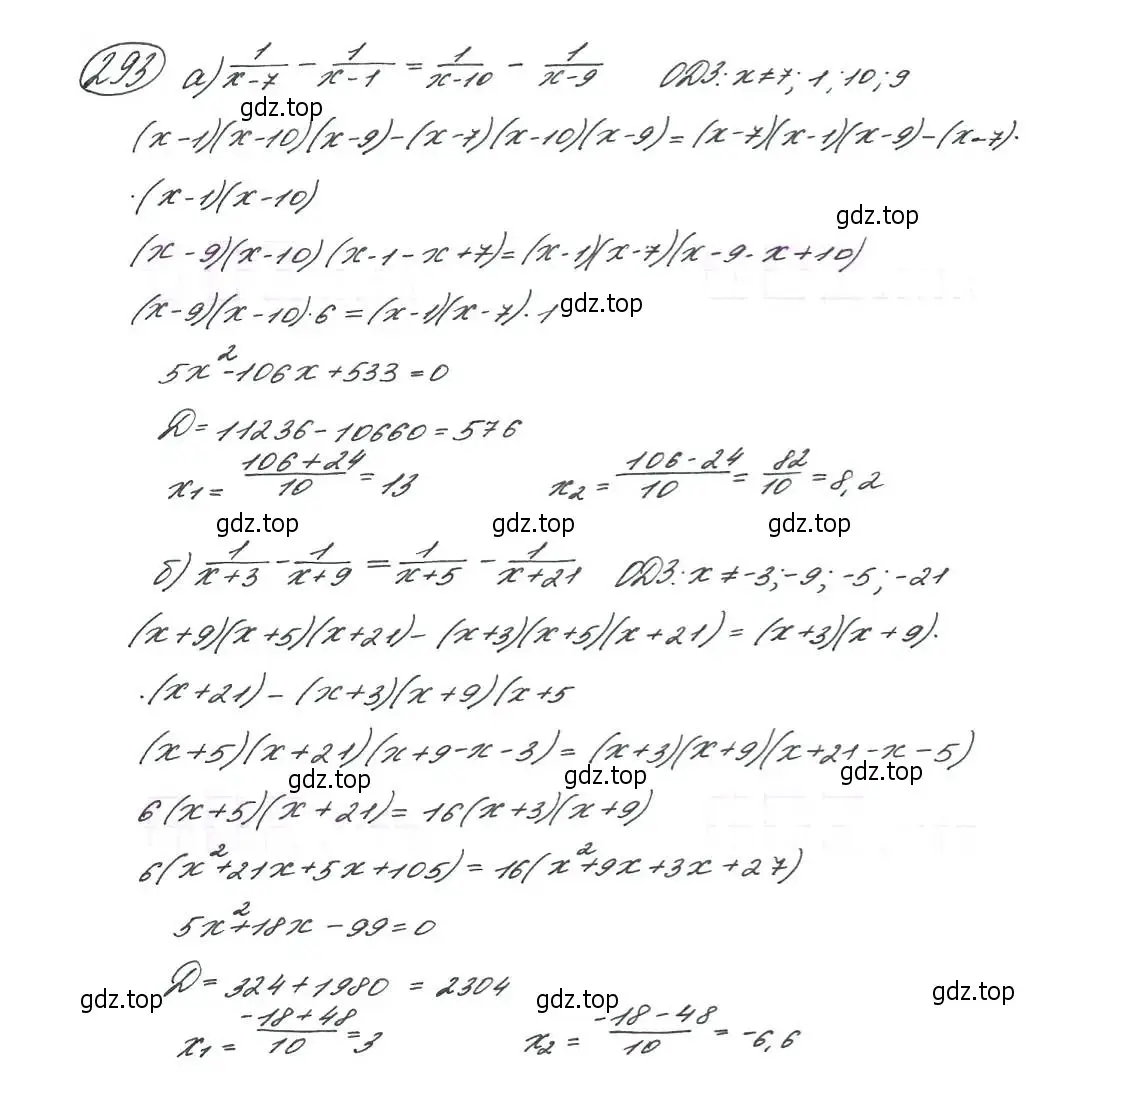 293 а) 1/(x-7) - 1/(x-1) = 1/(x-10) - 1/(x-9) ОДЗ: x≠7; 1; 10; 9
gdz.top
(x-1)(x-10)(x-9)-(x-7)(x-10)(x-9)=(x-7)(x-1)(x-9)-(x-7)·
·(x-1)(x-10)
gdz.top
(x-9)(x-10)(x-1-x+7)=(x-1)(x-7)(x-9-x+10)
(x-9)(x-10)·6=(x-1)(x-7)·1 gdz.top
5x²-106x+533=0
D=11236-10660=576
x₁=(106+24)/10=13 x₂=(106-24)/10=82/10=8,2
gdz.top gdz.top gdz.top
б) 1/(x+3) - 1/(x+9) = 1/(x+5) - 1/(x+21) ОДЗ: x≠-3;-9; -5; -21
(x+9)(x+5)(x+21)-(x+3)(x+5)(x+21)=(x+3)(x+9)·
·(x+21)-(x+3)(x+9)(x+5
(x+5)(x+21)(x+9-x-3)=(x+3)(x+9)(x+21-x-5)
gdz.top gdz.top gdz.top
6(x+5)(x+21)=16(x+3)(x+9)
6(x²+21x+5x+105)=16(x²+9x+3x+27)
5x²+18x-99=0
D=324+1980=2304
gdz.top gdz.top gdz.top
x₁=(-18+48)/10=3 x₂=(-18-48)/10=-6,6